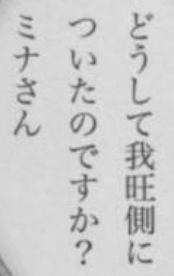 どうして我旺側に
ついたのですか？
ミナさん